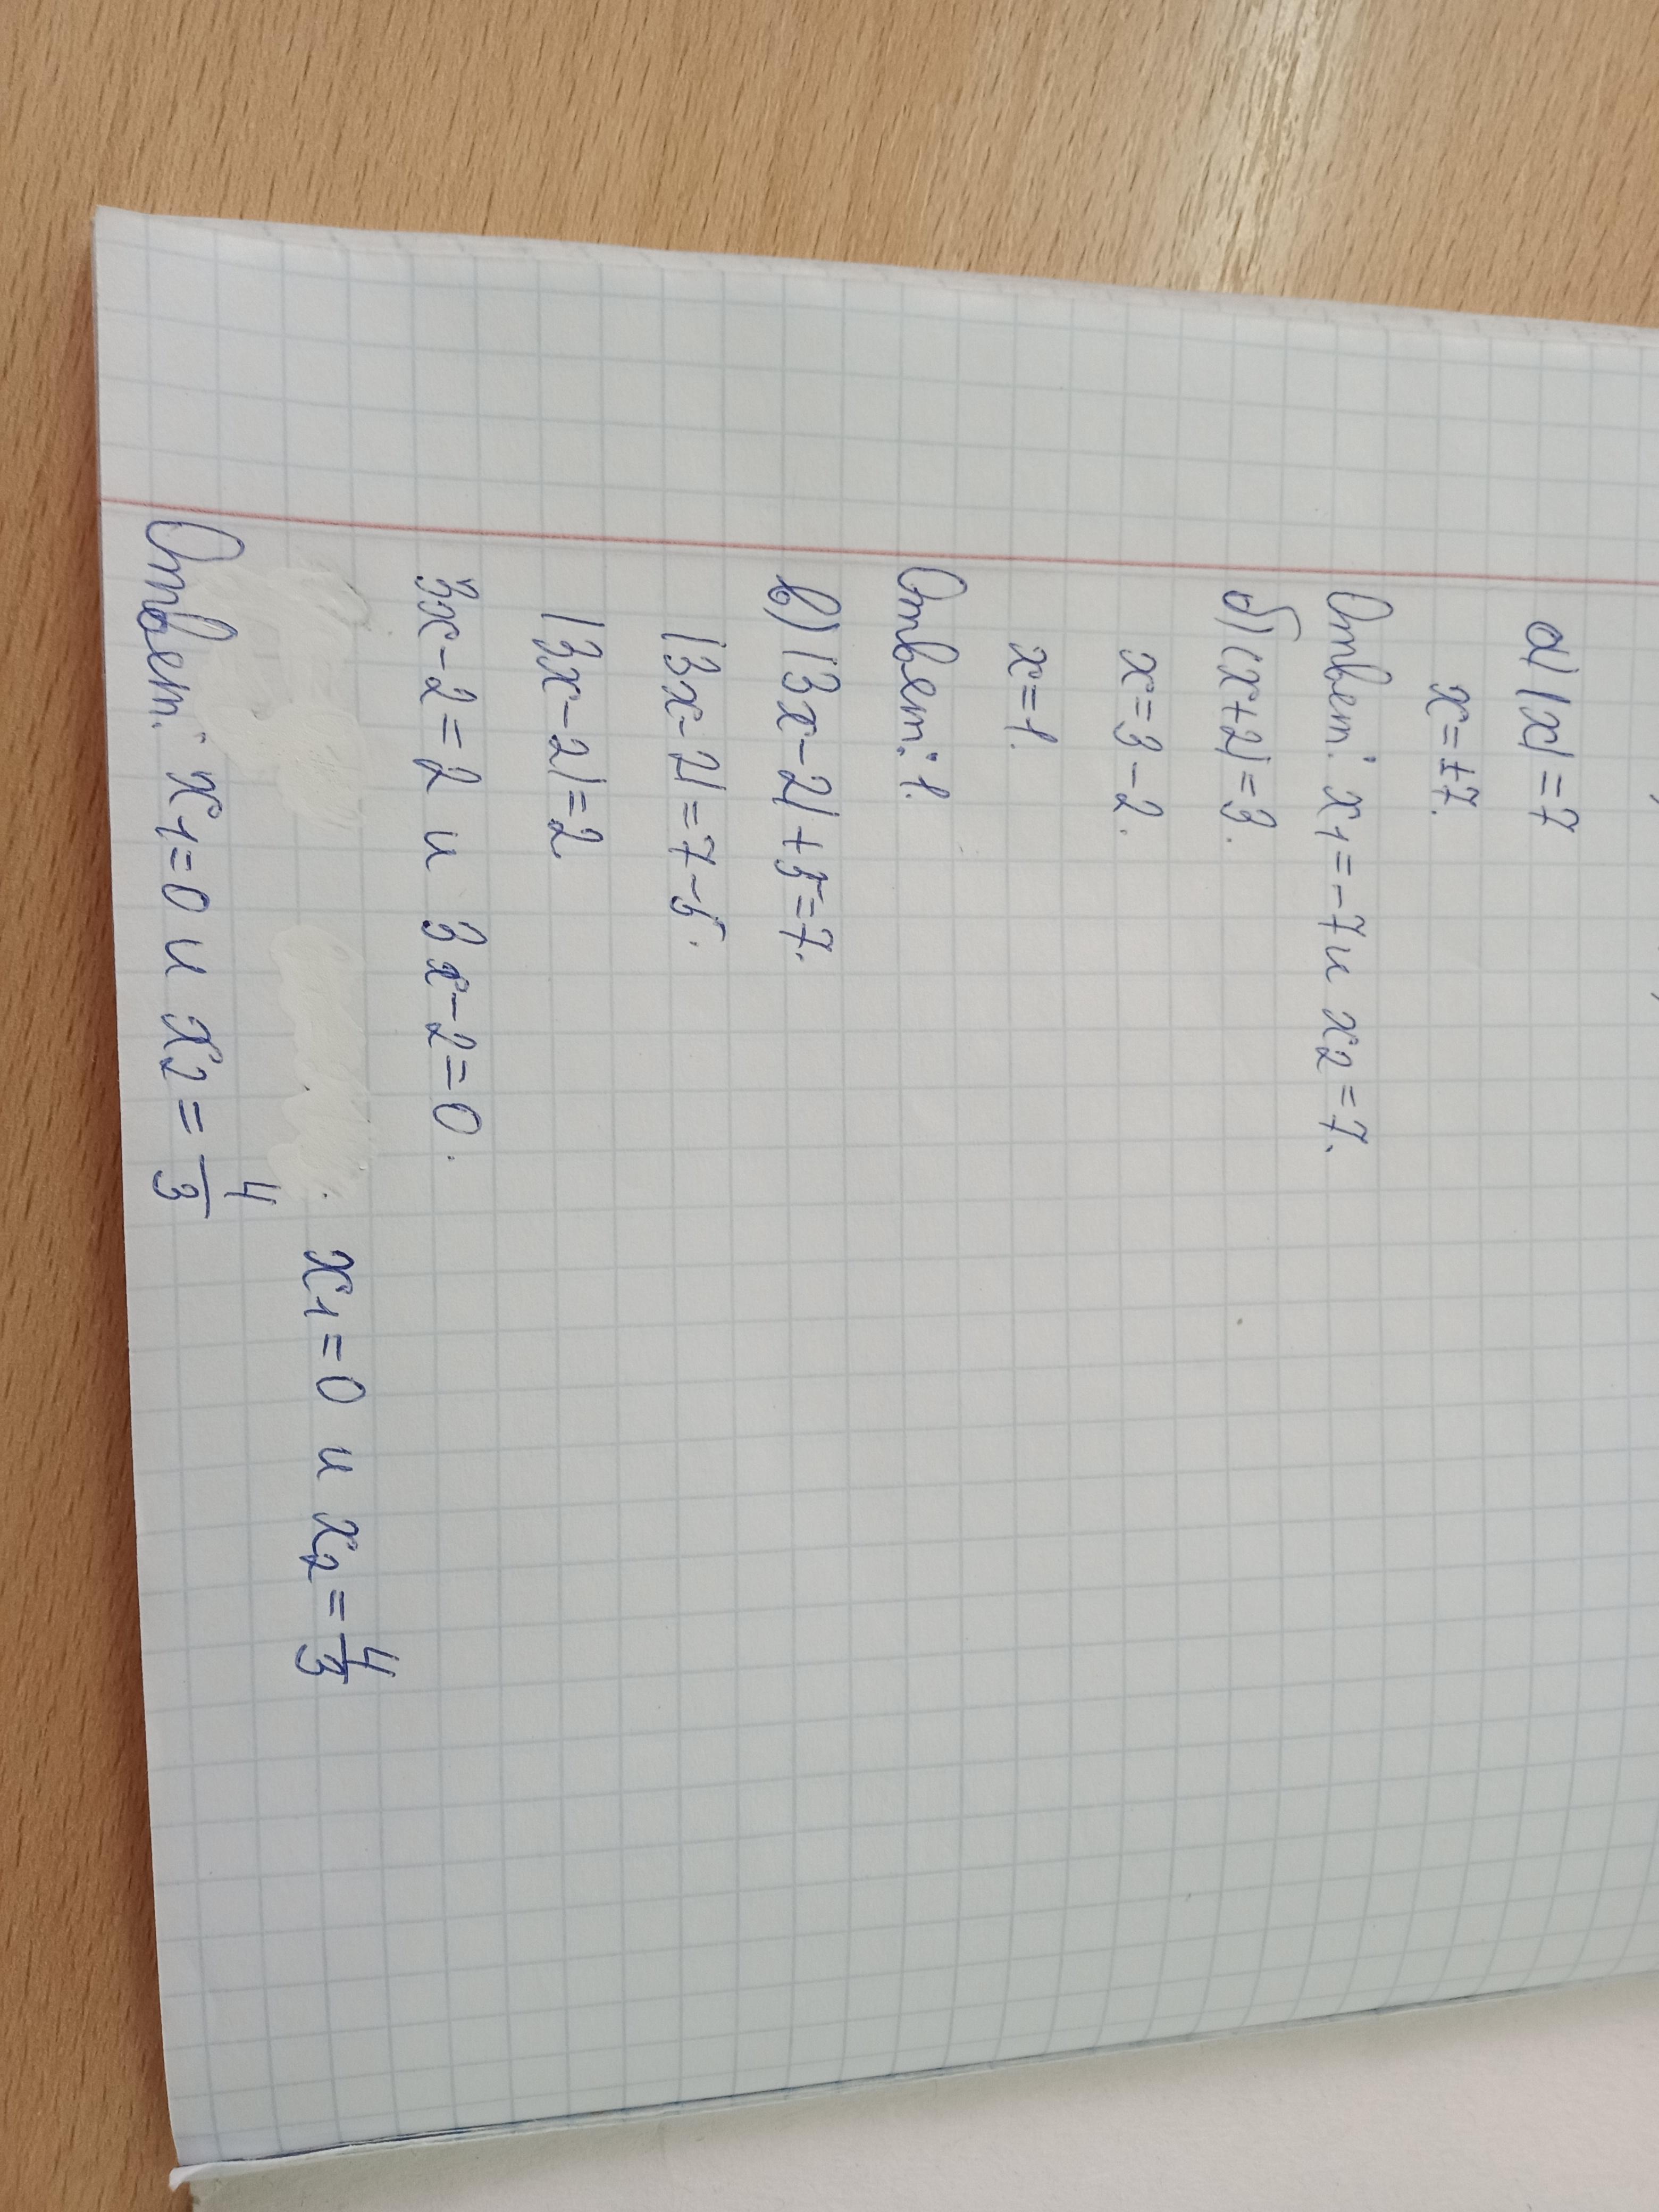 а) |x| = 7
x = ±7.
Ответ: x₁ = -7 и x₂ = 7.
б) |x+2| = 3.
x = 3 - 2.
x = 1.
Ответ: 1.
в) |3x - 2| + 5 = 7.
|3x - 2| = 7 - 5.
|3x - 2| = 2.
3x - 2 = 2 и 3x - 2 = 0.
x₁ = 0 и x₂ = 4/3
Ответ: x₁ = 0 и x₂ = 4/3